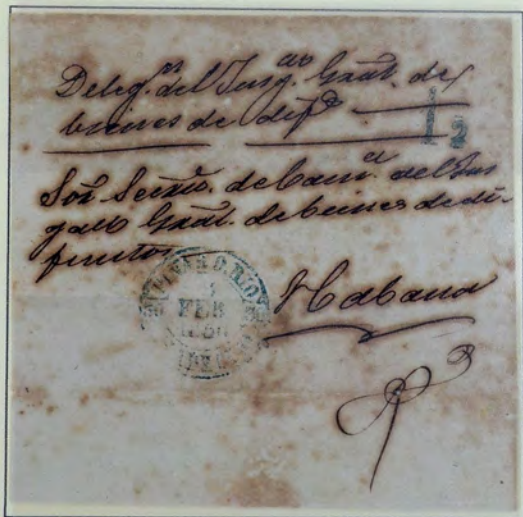 Delegⁿ del Juzgᵈᵒ Gral. de
bienes de difᵒˢ
1 2
Sor Secrio. de Cam.ª del Juz
gado Gral. de bienes de di-
funtos
FEB
Habana